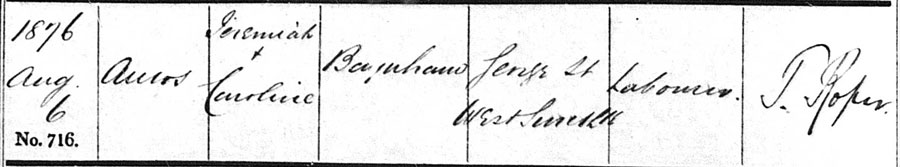 1876
Aug.
6
No. 716.
Amos
Jeremiah
+
Caroline
Baynham
George St
West
Labourer.
T. Roper.